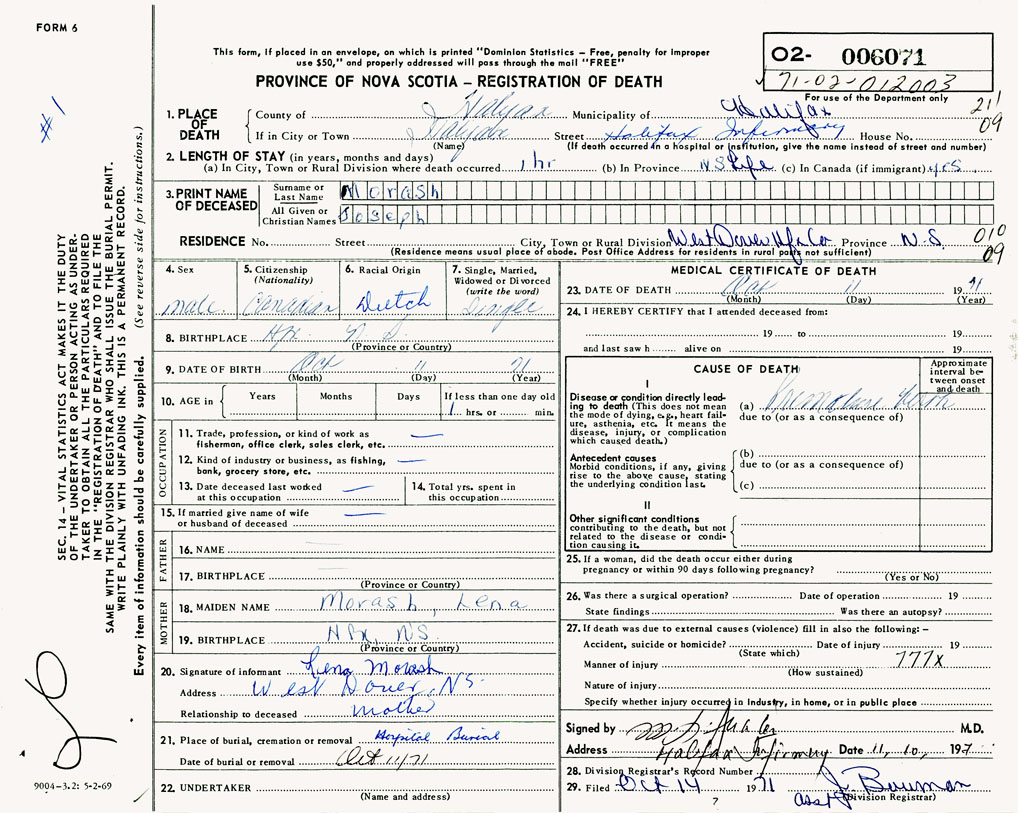 FORM 6
# 1
This form, if placed in an envelope, on which is printed "Dominion Statistics – Free, penalty for improper
use $50," and properly addressed will pass through the mail "FREE"
PROVINCE OF NOVA SCOTIA – REGISTRATION OF DEATH
02- 006071
71-02-012003
For use of the Department only
211
09
1. PLACE OF DEATH
County of Halifax Municipality of Halifax
If in City or Town Halifax Street Halifax Infirmary House No.
(Name) (If death occurred in a hospital or institution, give the name instead of street and number)
2. LENGTH OF STAY (in years, months and days)
(a) In City, Town or Rural Division where death occurred 1 hr (b) In Province NS Life (c) In Canada (if immigrant) yes
3. PRINT NAME OF DECEASED
Surname or Last Name Morash
All Given or Christian Names Joseph
RESIDENCE No. Street City, Town or Rural Division West Dover Hfx Co Province N.S. 010
(Residence means usual place of abode. Post Office Address for residents in rural parts not sufficient) 09
4. Sex
male
5. Citizenship
(Nationality)
Canadian
6. Racial Origin
Dutch
7. Single, Married,
Widowed or Divorced
(write the word)
Single
8. BIRTHPLACE Hfx N S
(Province or Country)
9. DATE OF BIRTH Oct 11 71
(Month) (Day) (Year)
10. AGE in
Years Months Days If less than one day old
1 hrs. or min.
OCCUPATION
11. Trade, profession, or kind of work as
fisherman, office clerk, sales clerk, etc. —
12. Kind of industry or business, as fishing,
bank, grocery store, etc. —
13. Date deceased last worked
at this occupation —
14. Total yrs. spent in
this occupation
15. If married give name of wife
or husband of deceased —
FATHER
16. NAME
17. BIRTHPLACE
(Province or Country)
MOTHER
18. MAIDEN NAME Morash, Lena
19. BIRTHPLACE Hfx, N.S.
(Province or Country)
20. Signature of informant Lena Morash
Address West Dover, NS.
Relationship to deceased mother
21. Place of burial, cremation or removal Hospital Burial
Date of burial or removal Oct 11/71
22. UNDERTAKER
(Name and address)
MEDICAL CERTIFICATE OF DEATH
23. DATE OF DEATH Oct 11 1971
(Month) (Day) (Year)
24. I HEREBY CERTIFY that I attended deceased from:
19 to 19
and last saw h alive on 19
CAUSE OF DEATH
Approximate
interval be-
tween onset
and death
I
Disease or condition directly lead-
ing to death (This does not mean
the mode of dying, e.g., heart fail-
ure, asthenia, etc. It means the
disease, injury, or complication
which caused death.)
(a) Premature Birth
due to (or as a consequence of)
Antecedent causes
Morbid conditions, if any, giving
rise to the above cause, stating
the underlying condition last.
(b)
due to (or as a consequence of)
(c)
II
Other significant conditions
contributing to the death, but not
related to the disease or condi-
tion causing it.
25. If a woman, did the death occur either during
pregnancy or within 90 days following pregnancy?
(Yes or No)
26. Was there a surgical operation? Date of operation 19
State findings Was there an autopsy?
27. If death was due to external causes (violence) fill in also the following: –
Accident, suicide or homicide? Date of injury 19
(State which)
Manner of injury 777X
(How sustained)
Nature of injury
Specify whether injury occurred in Industry, in home, or in public place
Signed by M.D.
Address Halifax Infirmary Date 11, 10, 197
28. Division Registrar's Record Number
29. Filed Oct 14 1971 J Bowman
asst (Division Registrar)
7
SEC. 14 – VITAL STATISTICS ACT MAKES IT THE DUTY
OF THE UNDERTAKER OR PERSON ACTING AS UNDER-
TAKER TO OBTAIN ALL THE PARTICULARS REQUIRED
IN THE "REGISTRATION OF DEATH" AND TO FILE THE
SAME WITH THE DIVISION REGISTRAR WHO SHALL ISSUE THE BURIAL PERMIT.
WRITE PLAINLY WITH UNFADING INK. THIS IS A PERMANENT RECORD.
Every item of information should be carefully supplied. (See reverse side for instructions.)
9004-3.2: 5-2-69